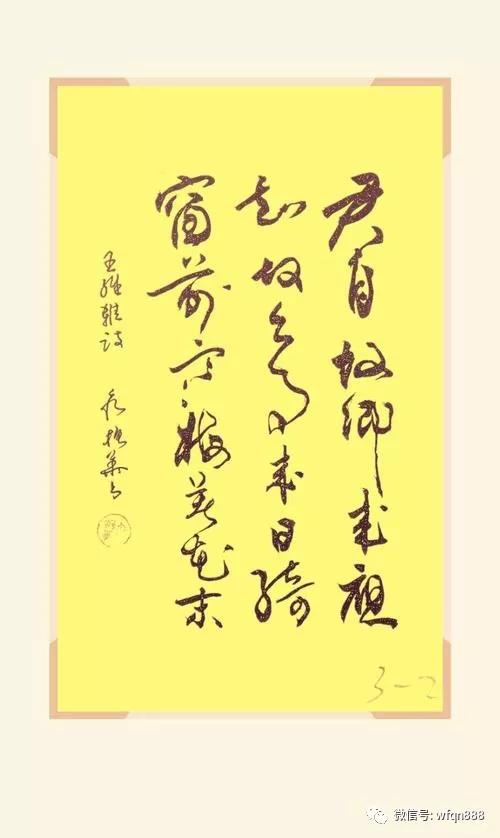 君自故鄉來應
知故鄉事來日綺
窗前寒梅著花未
王維雜詩
3-2
微信号: wfqn888